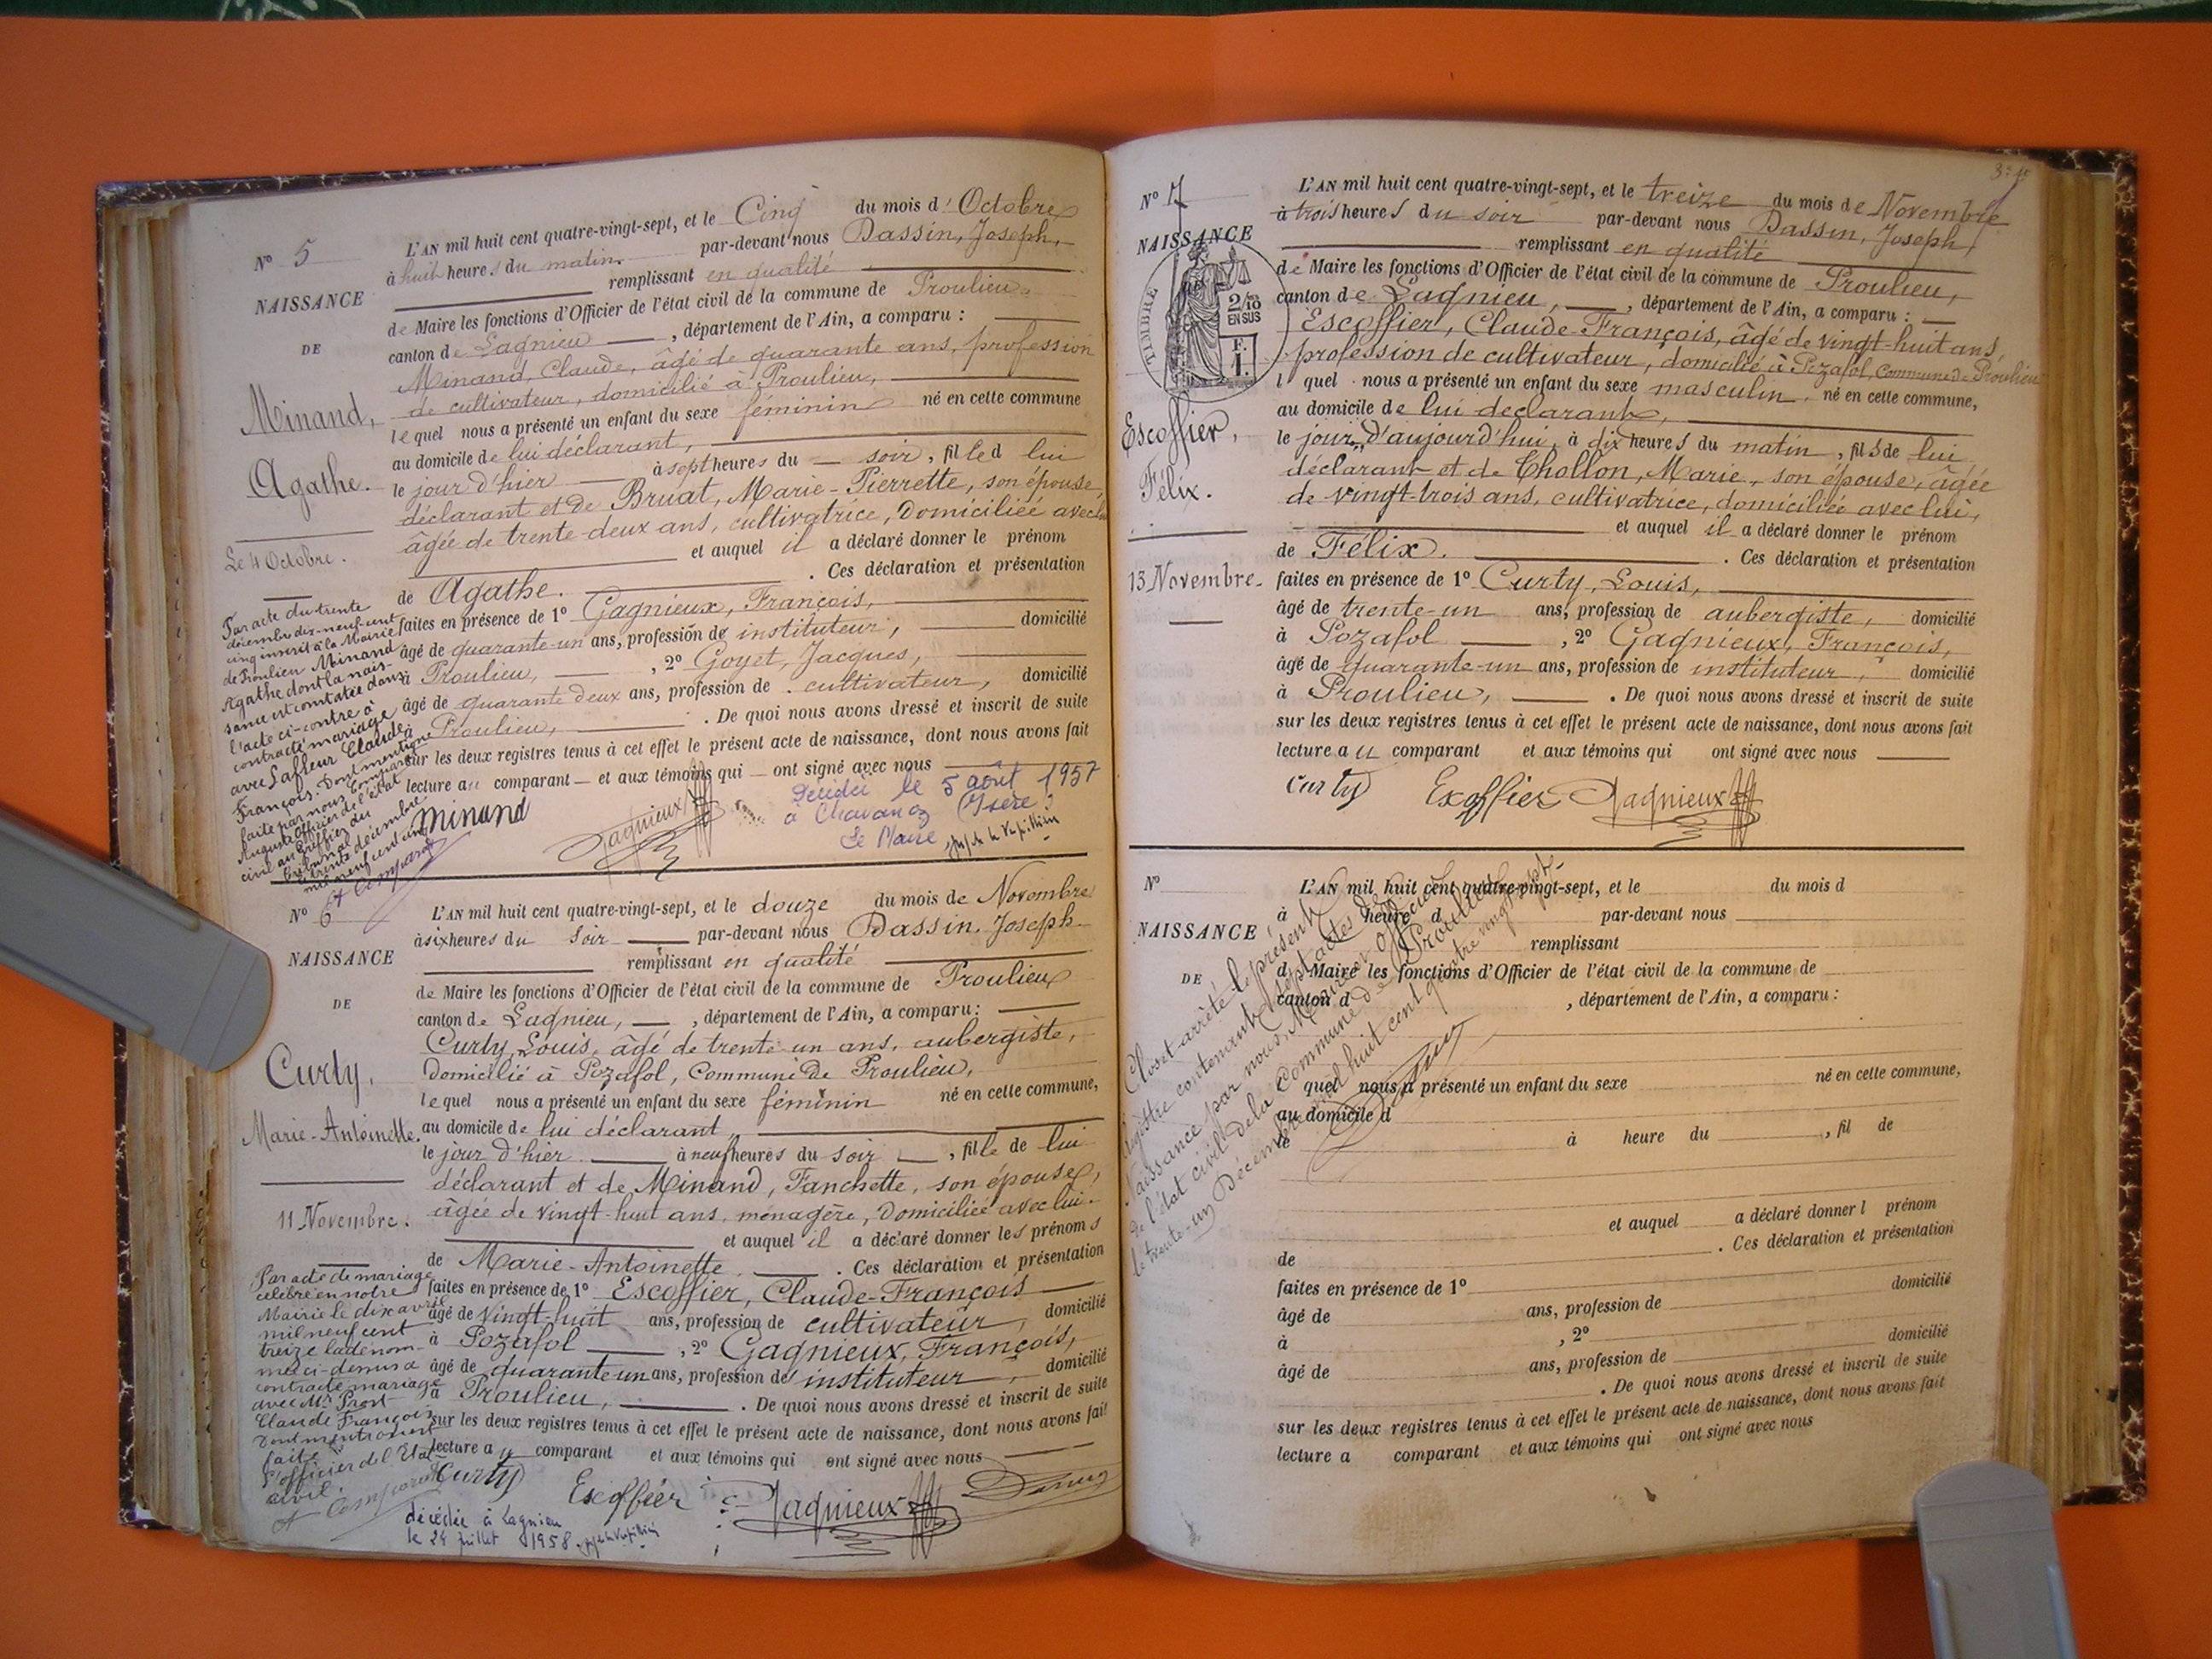 N° 5
NAISSANCE
DE
Minand,
Agathe.
Le 4 Octobre.
L'AN mil huit cent quatre-vingt-sept, et le Cinq du mois d'Octobre
à huit heures du matin par-devant nous Dassin, Joseph,
remplissant en qualité
de Maire les fonctions d'Officier de l'état civil de la commune de Proulieu
canton de Lagnieu, département de l'Ain, a comparu :
Minand, Claude, âgé de quarante ans, profession
de cultivateur, domicilié à Proulieu,
lequel nous a présenté un enfant du sexe féminin né en cette commune
au domicile de lui déclarant,
le jour d'hier à sept heures du soir, fille d lui
déclarant et de Bruat, Marie-Pierrette, son épouse,
âgée de trente-deux ans, cultivatrice, domiciliée avec lui
et auquel il a déclaré donner le prénom
de Agathe. Ces déclaration et présentation
faites en présence de 1° Gagnieux, François,
âgé de quarante-un ans, profession de instituteur, domicilié
à Proulieu, 2° Goyet, Jacques,
âgé de quarante deux ans, profession de cultivateur, domicilié
à Proulieu, . De quoi nous avons dressé et inscrit de suite
sur les deux registres tenus à cet effet le présent acte de naissance, dont nous avons fait
lecture au comparant et aux témoins qui ont signé avec nous
Par acte du trente
décembre dix-neuf cent
cinq inscrit à la Mairie
de Proulieu Minand
Agathe dont la nais-
sance est constatée dans
l'acte ci-contre à
contracté mariage
avec Lafleur Claude
François. Dont mention
faite par nous Comparat
Auguste Officier de l'état
civil au Greffier du
tribunal
trente décembre
mil neuf cent cinq
A Comparat
Minand Gagnieux
Décédée le 5 août 1957
à Chavanoz (Isère)
Le Maire
N° 6
NAISSANCE
DE
Curty,
Marie-Antoinette.
11 Novembre.
L'AN mil huit cent quatre-vingt-sept, et le douze du mois de Novembre
à six heures du soir par-devant nous Dassin, Joseph
remplissant en qualité
de Maire les fonctions d'Officier de l'état civil de la commune de Proulieu
canton de Lagnieu, département de l'Ain, a comparu :
Curty, Louis, âgé de trente un ans, aubergiste,
domicilié à Pozafol, Commune de Proulieu,
lequel nous a présenté un enfant du sexe féminin né en cette commune,
au domicile de lui déclarant,
le jour d'hier à neuf heures du soir, fille de lui
déclarant et de Minand, Fanchette, son épouse,
âgée de vingt-huit ans, ménagère, domiciliée avec lui.
et auquel il a déclaré donner les prénoms
de Marie-Antoinette . Ces déclaration et présentation
faites en présence de 1° Escoffier, Claude-François
âgé de vingt-huit ans, profession de cultivateur, domicilié
à Pozafol, 2° Gagnieux, François,
âgé de quarante un ans, profession de instituteur, domicilié
à Proulieu, . De quoi nous avons dressé et inscrit de suite
sur les deux registres tenus à cet effet le présent acte de naissance, dont nous avons fait
lecture au comparant et aux témoins qui ont signé avec nous
Par acte de mariage
célébré en notre
Mairie le dix avril
mil neuf cent
treize la dénom-
mée ci-dessus a
contracté mariage
avec Mr Prost
Claude François
Dont mention est
faite
l'officier de l'Etat
civil.
A Comparat
Curty Escoffier Gagnieux Dassin
décédée à Lagnieu
le 24 juillet 1958
N° 7
NAISSANCE
DE
TIMBRE
2/10
EN SUS
F.
1.
Escoffier,
Félix.
13 Novembre.
L'AN mil huit cent quatre-vingt-sept, et le treize du mois de Novembre
à trois heures du soir par-devant nous Dassin, Joseph,
remplissant en qualité
de Maire les fonctions d'Officier de l'état civil de la commune de Proulieu,
canton de Lagnieu, département de l'Ain, a comparu :
Escoffier, Claude-François, âgé de vingt-huit ans,
profession de cultivateur, domicilié à Pozafol, Commune de Proulieu
l quel nous a présenté un enfant du sexe masculin, né en cette commune,
au domicile de lui déclarant,
le jour d'aujourd'hui, à dix heures du matin, fils de lui
déclarant et de Chollon, Marie, son épouse, âgée
de vingt-trois ans, cultivatrice, domiciliée avec lui,
et auquel il a déclaré donner le prénom
de Félix. . Ces déclaration et présentation
faites en présence de 1° Curty, Louis,
âgé de trente-un ans, profession de aubergiste, domicilié
à Pozafol, 2° Gagnieux, François,
âgé de quarante-un ans, profession de instituteur, domicilié
à Proulieu, . De quoi nous avons dressé et inscrit de suite
sur les deux registres tenus à cet effet le présent acte de naissance, dont nous avons fait
lecture au comparant et aux témoins qui ont signé avec nous
Curty Escoffier Gagnieux
N°
NAISSANCE
DE
L'AN mil huit cent quatre-vingt-sept, et le du mois d
à heure d par-devant nous
remplissant
d Maire les fonctions d'Officier de l'état civil de la commune de
canton d , département de l'Ain, a comparu :
l quel nous a présenté un enfant du sexe né en cette commune,
au domicile d
le à heure du , fil de
et auquel a déclaré donner l prénom
de . Ces déclaration et présentation
faites en présence de 1° domicilié
âgé de ans, profession de
à , 2° domicilié
âgé de ans, profession de
. De quoi nous avons dressé et inscrit de suite
sur les deux registres tenus à cet effet le présent acte de naissance, dont nous avons fait
lecture a comparant et aux témoins qui ont signé avec nous
Clos et arrêté le présent
registre contenant sept actes de
Naissance par nous, Maire officier
de l'état civil de la Commune de Proulieu
le trente-un Décembre mil huit cent quatre vingt sept.